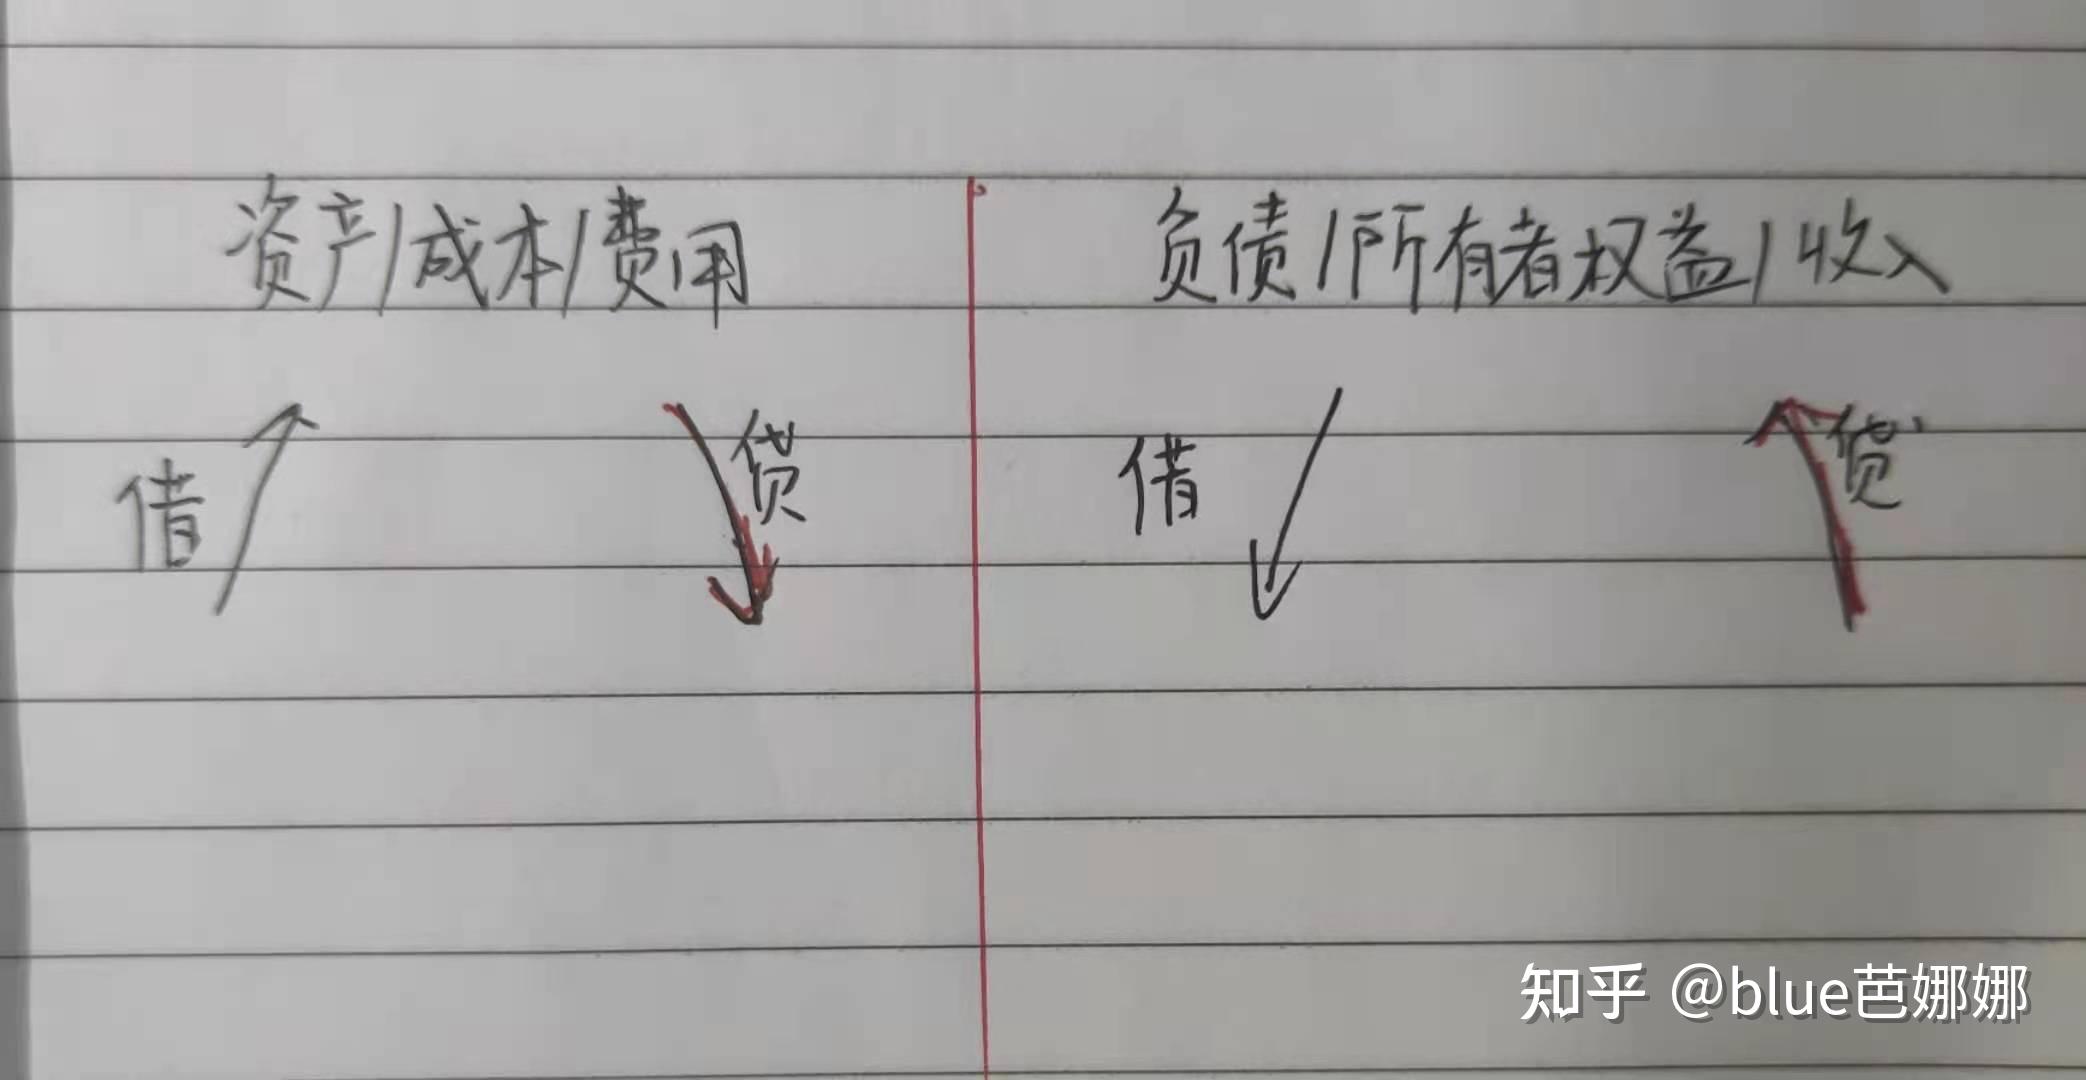 资产/成本/费用
负债/所有者权益/收入
借 贷
借 贷
知乎 @blue芭娜娜